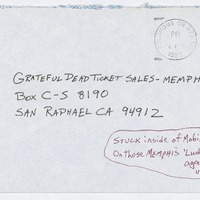 PM
GRATEFUL DEAD TICKET SALES-MEMPH
BOX C-S 8190
SAN RAPHAEL CA 94912
STUCK inside of Mobi
On those MEMPHIS
aga